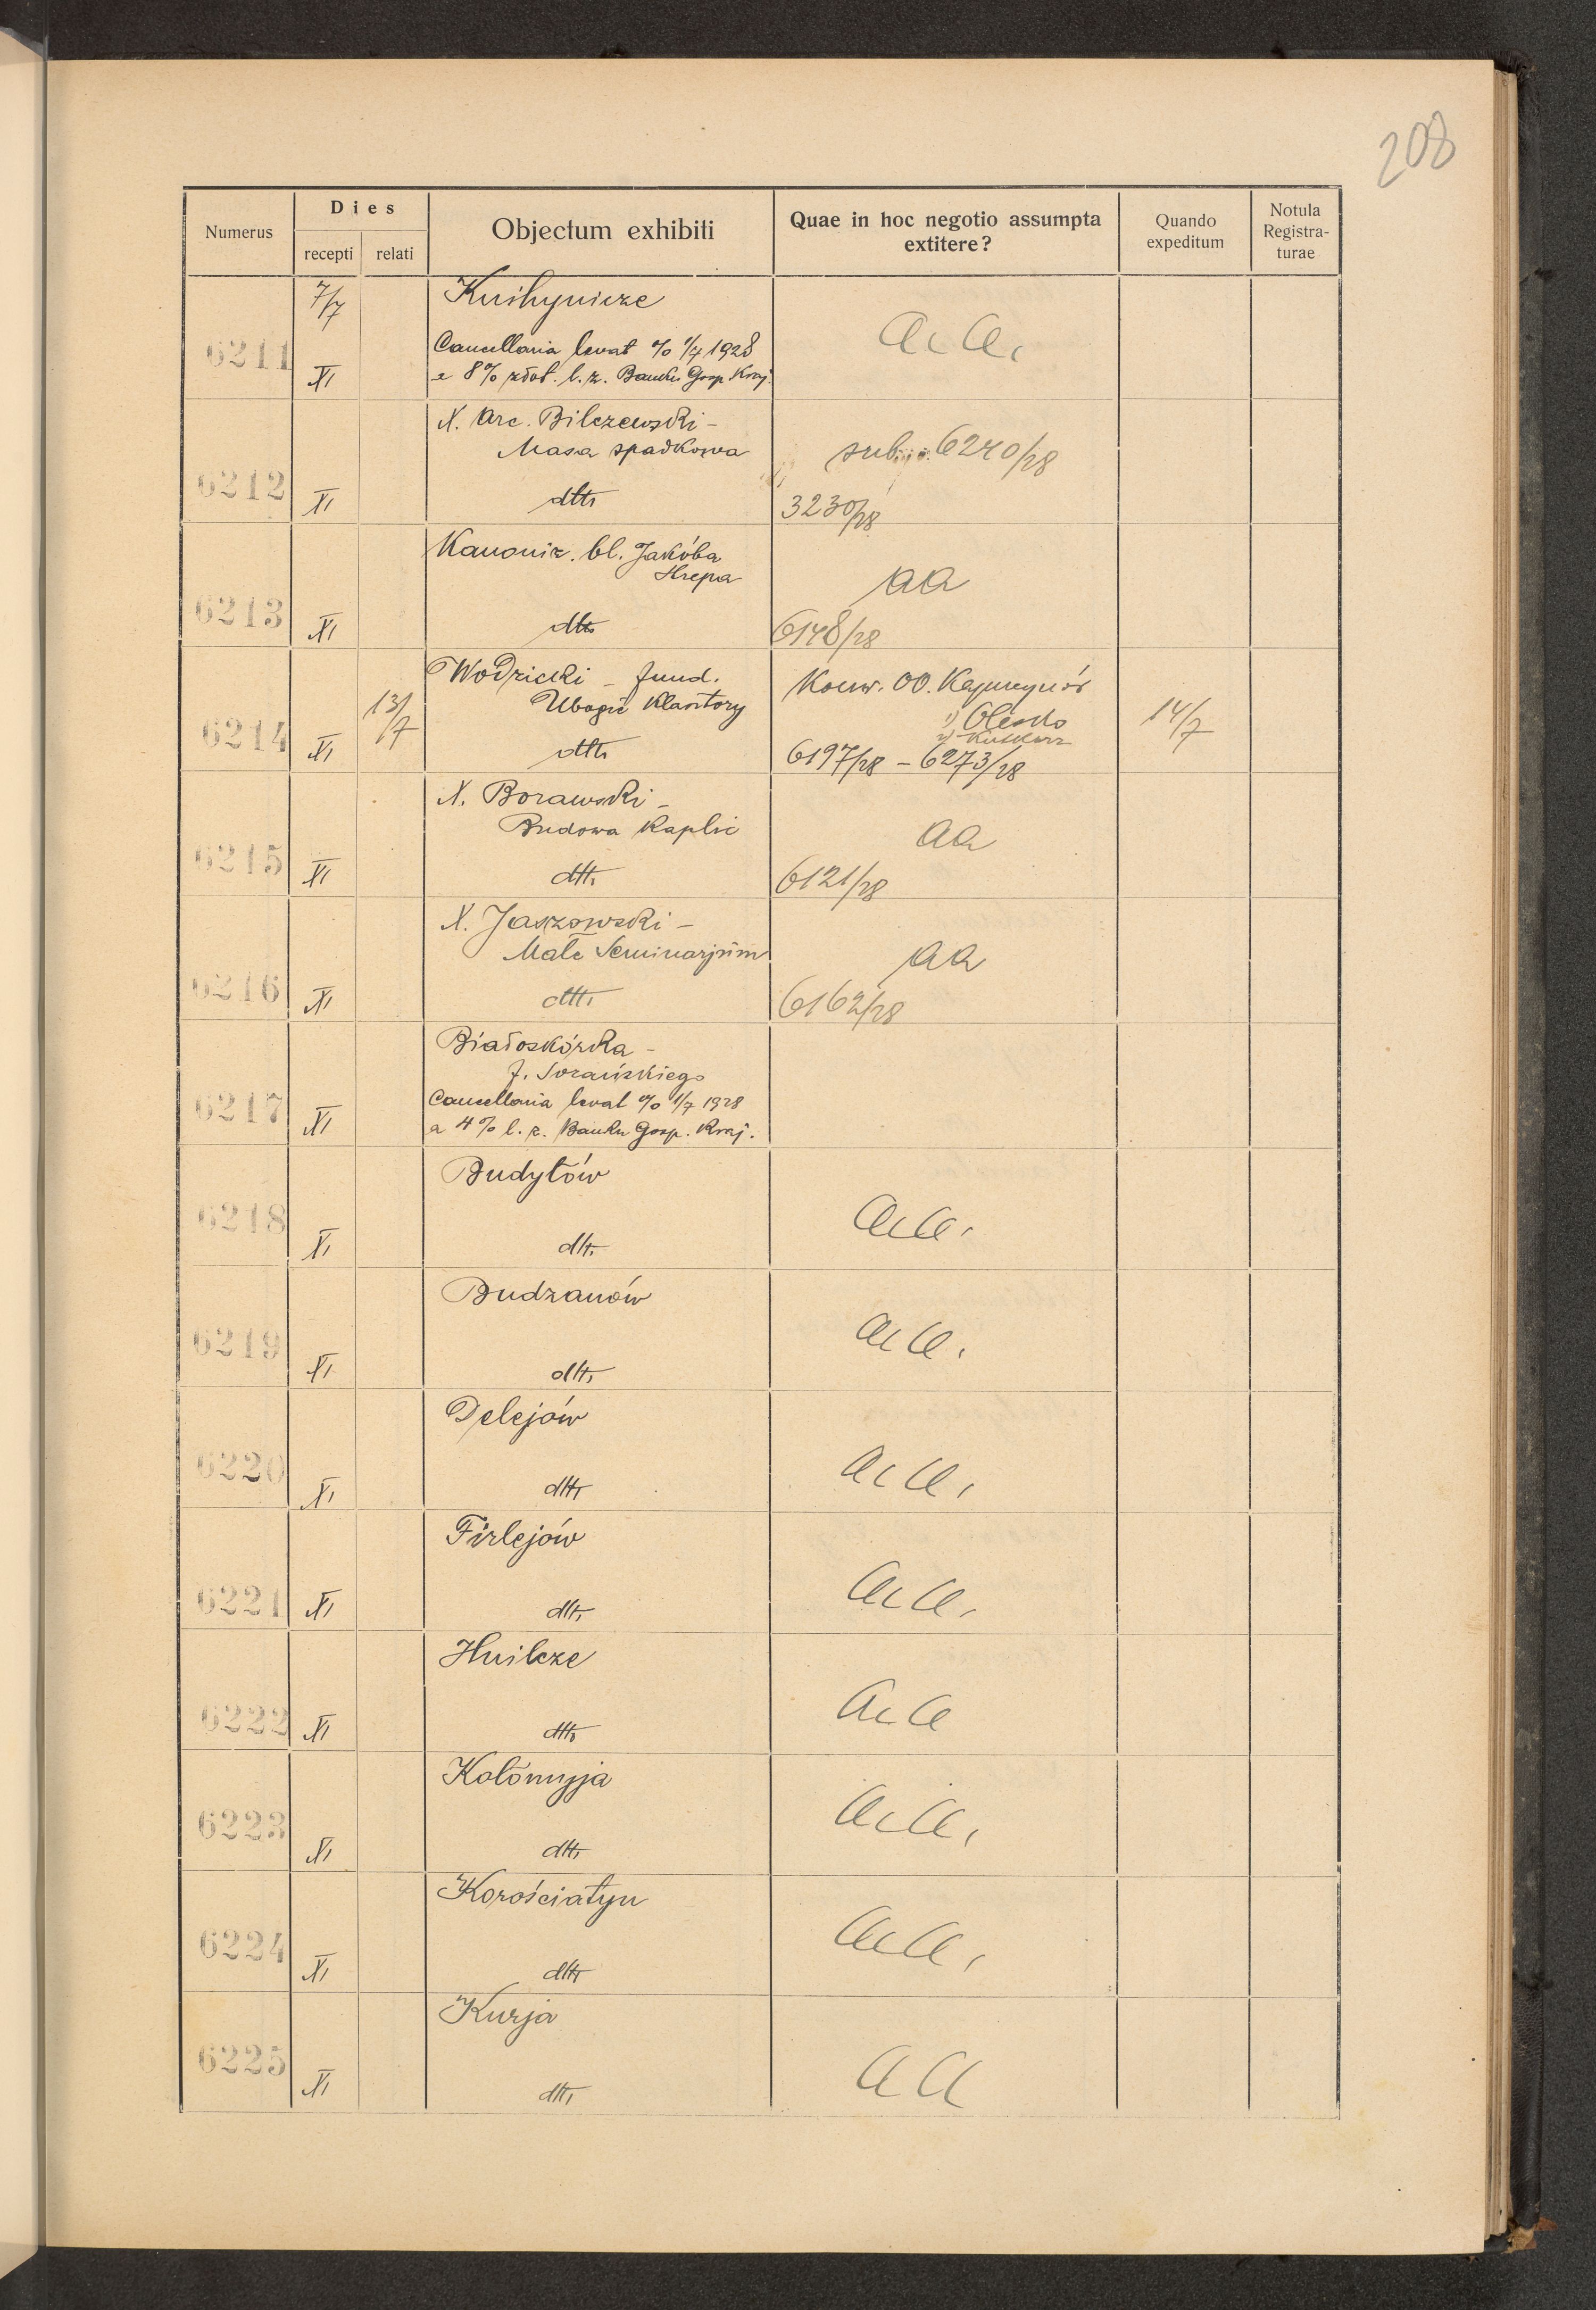 208
Numerus
Dies
recepti
relati
Objectum exhibiti
Quae in hoc negotio assumpta
extitere?
Quando
expeditum
Notula
Registra-
turae
7/7
Knihynicze
6211
Cancellaria levat % 1/7 1928
a 8% złot. l. z. Banku Gosp Kraj.
XI
a. a.
X. Arc. Bilczewski -
Masa spadkowa
sub 6240/28
6212
XI
dtt.
3230/28
Kanoniz. bl. Jakóba
Strepa
aa
6213
XI
dtt.
6148/28
Wodzicki - fund.
Ubogie Klasztory
Konw. OO. Kapucynów
1) Olesko
6214
XI
13/7
dtt.
6197/28 - 6273/28
14/7
X. Borawski -
Budowa Kaplic
aa
6215
XI
dtt.
6121/28
X. Jaszowski -
Małe Seminarjum
aa
6216
XI
dtt.
6162/28
Białoskórka -
f. Sozańskiego
6217
XI
Cancellaria levat % 1/7 1928
a 4% l. z. Banku Gosp. Kraj.
Budyłów
6218
XI
dtt.
a.a.
Budzanów
6219
XI
dtt.
a.a.
Delejów
6220
XI
dtt.
a.a.
Firlejów
6221
XI
dtt.
a.a.
Hnilcze
6222
XI
dtt.
a.a
Kołomyja
6223
XI
dtt.
a.a.
Korościatyn
6224
XI
dtt.
a.a.
Kurja
6225
XI
dtt.
a a